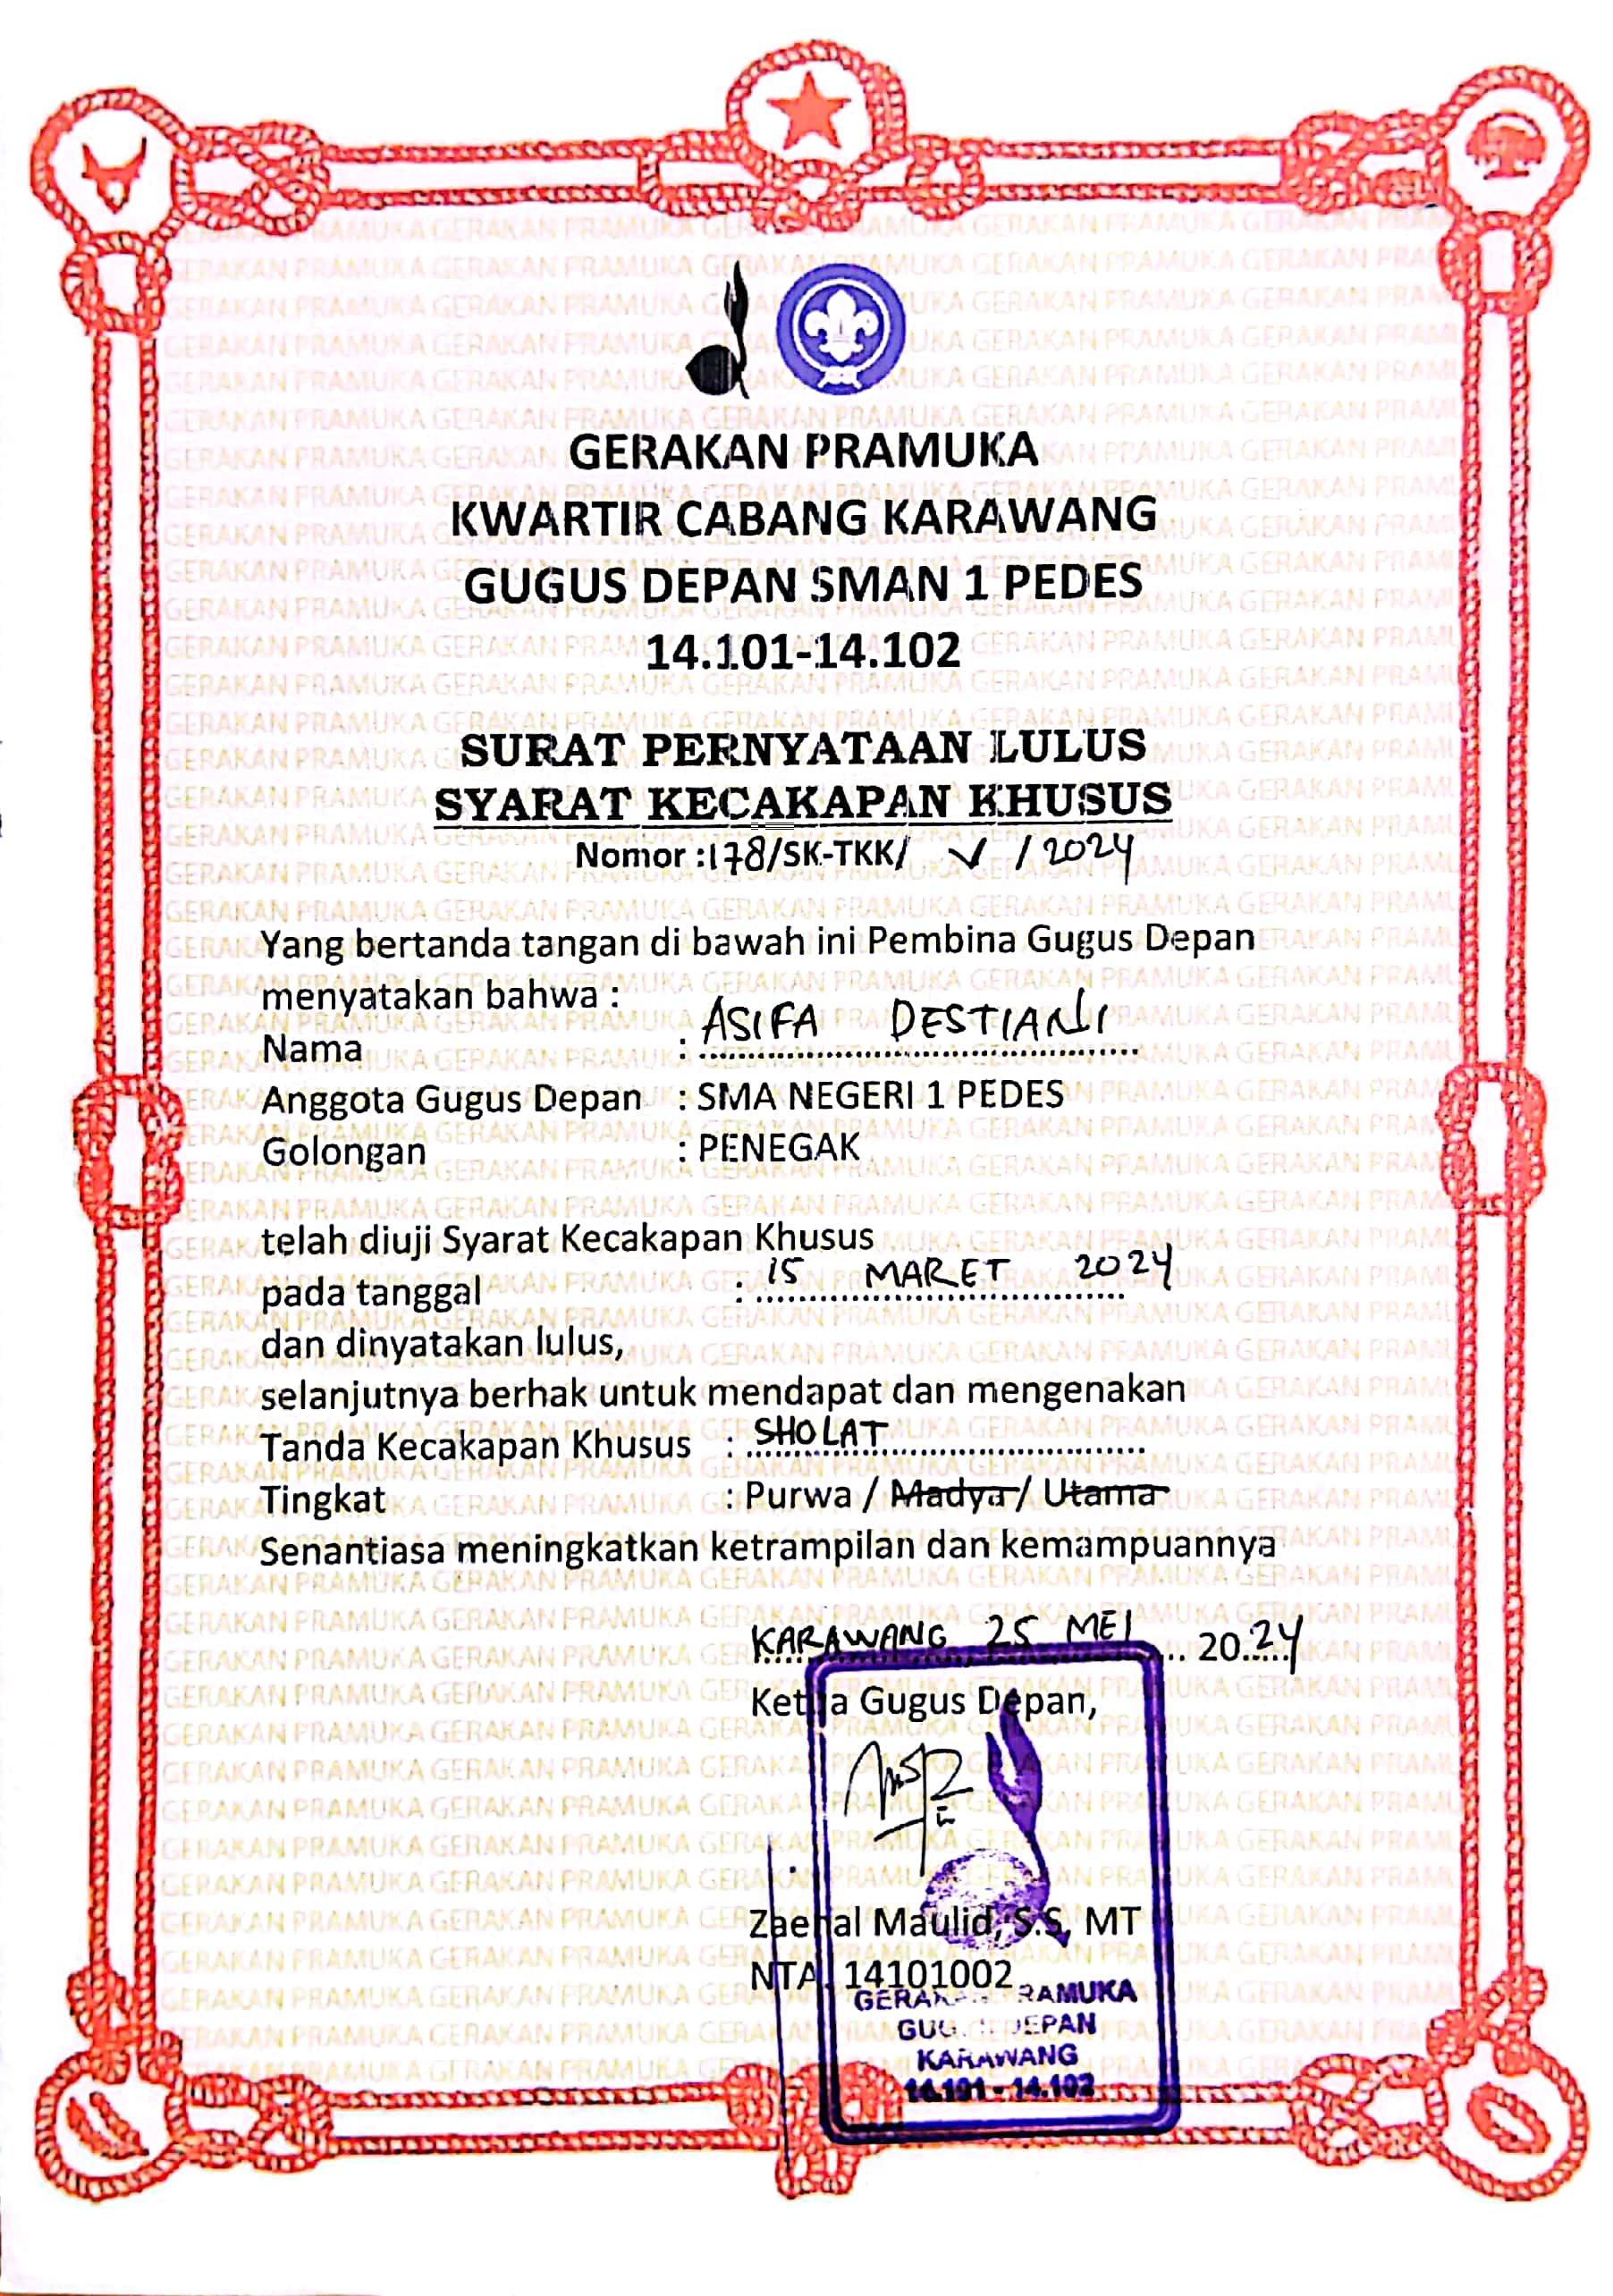 GERAKAN PRAMUKA
KWARTIR CABANG KARAWANG
GUGUS DEPAN SMAN 1 PEDES
14.101-14.102
SURAT PERNYATAAN LULUS
SYARAT KECAKAPAN KHUSUS
Nomor :178/SK-TKK/ V / 2024
Yang bertanda tangan di bawah ini Pembina Gugus Depan
menyatakan bahwa :
Nama : ASIFA DESTIANI
Anggota Gugus Depan : SMA NEGERI 1 PEDES
Golongan : PENEGAK
telah diuji Syarat Kecakapan Khusus
pada tanggal : 15 MARET 2024
dan dinyatakan lulus,
selanjutnya berhak untuk mendapat dan mengenakan
Tanda Kecakapan Khusus : SHOLAT
Tingkat : Purwa / Madya / Utama
Senantiasa meningkatkan ketrampilan dan kemampuannya
KARAWANG, 25 MEI 2024
Ketua Gugus Depan,
Zaenal Maulid, S.S, MT
NTA. 14101002
GERAKAN PRAMUKA
GUGUS DEPAN
KARAWANG
14.101 - 14.102